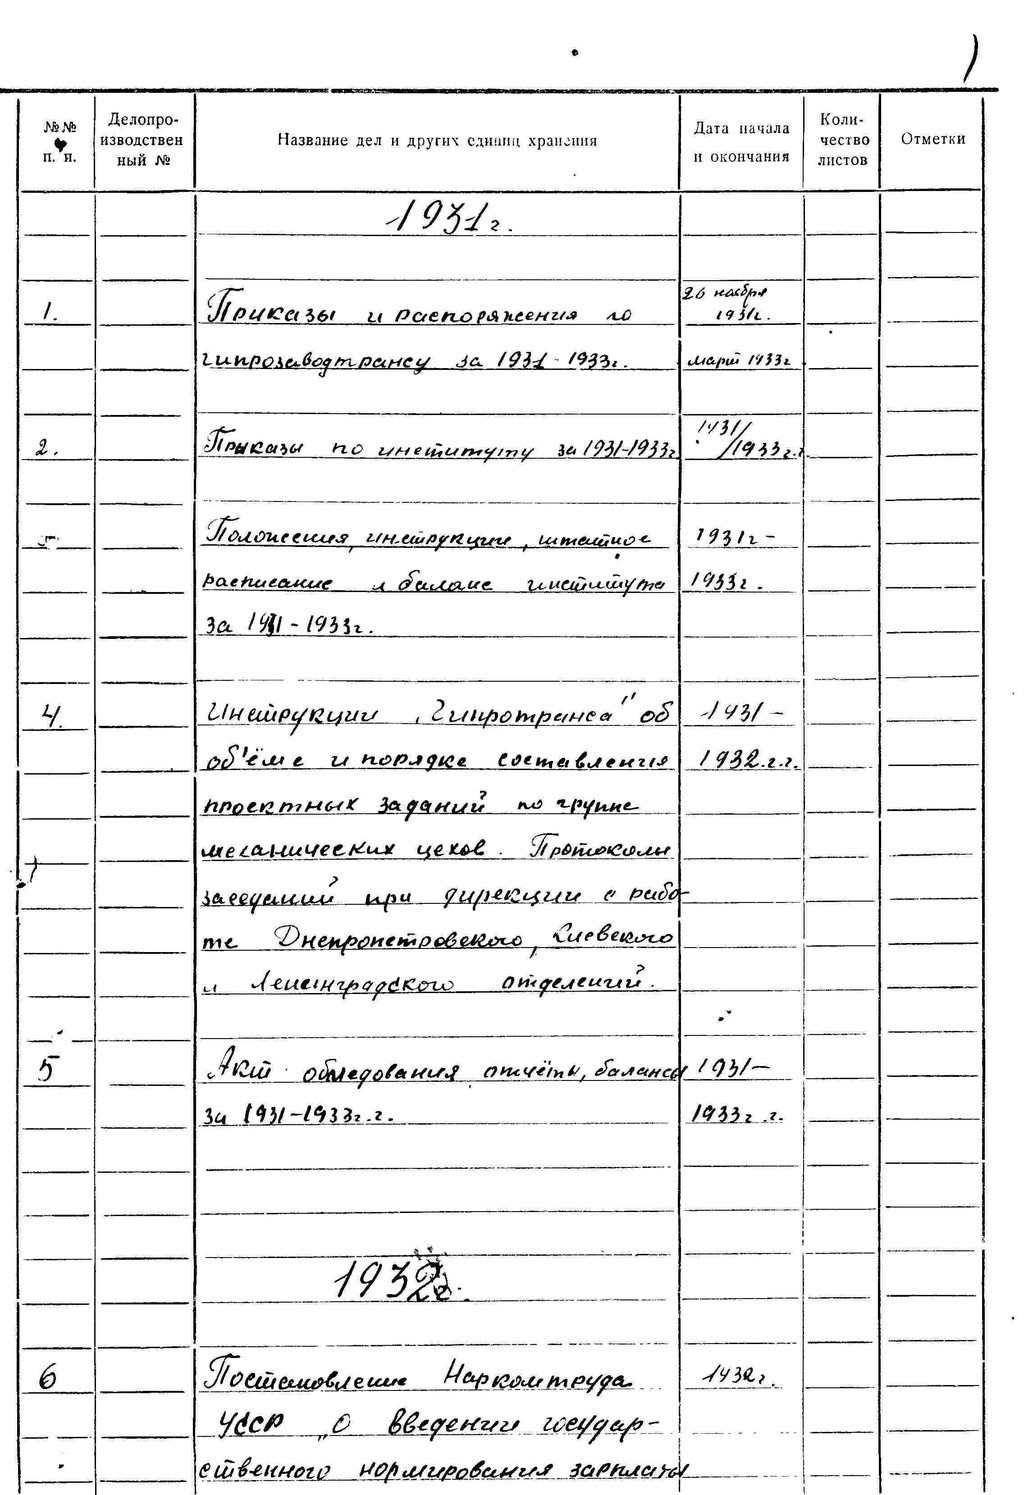 )
№№ п. п.
Делопро-
изводствен
ный №
Название дел и других единиц хранения
Дата начала
и окончания
Коли-
чество
листов
Отметки
1931г.
1. Приказы и распоряжения по 26 ноября 1931г.
гипрозаводтрансу за 1931-1933г. март 1933г
2. Приказы по институту за 1931-1933г 1931/1933г.г
Положения, инструкции, штатное 1931г-
расписание и баланс института 1933г.
за 1931-1933г.
4. Инструкции „Гипротранса" об 1931-
об'ёме и порядке составления 1932.г.г.
проектных заданий по группе
механических цехов. Протоколы
заседаний при дирекции о рабо-
те Днепропетровского, Киевского
и Ленинградского отделений.
5 Акт обледования, отчёты, балансы 1931-
за 1931-1933г.г. 1933г.г.
1932г.
6 Постановление Наркомтруда 1932г.
УССР „О введении государ-
ственного нормирования зарплаты